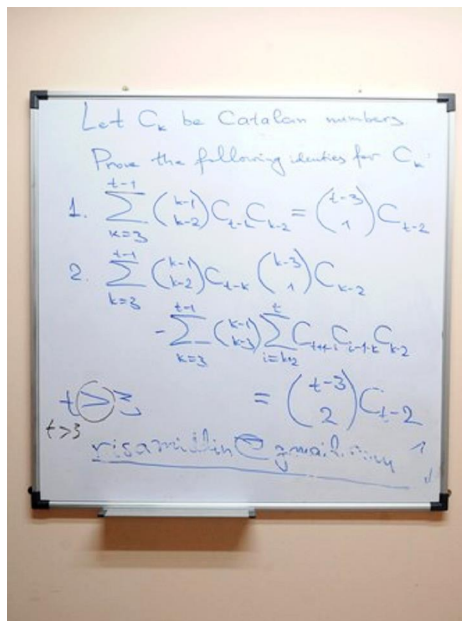 Let C_k be Catalan numbers.
Prove the following identies for C_k:
1. \sum_{k=3}^{t-1} \binom{k-1}{k-2} C_{t-k} C_{k-2} = \binom{t-3}{1} C_{t-2}
2. \sum_{k=3}^{t-1} \binom{k-1}{k-2} C_{t-k} \binom{k-3}{1} C_{k-2}
- \sum_{k=3}^{t-1} \binom{k-1}{k-3} \sum_{i=k+2}^{t} C_{t+1-i} C_{i-1-k} C_{k-2}
t ≥ 3 = \binom{t-3}{2} C_{t-2}
t > 3